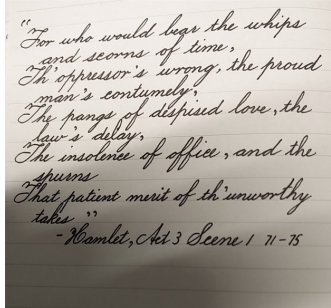 "For who would bear the whips
and scorns of time,
Th'oppressor's wrong, the proud
man's contumely,
The pangs of despised love, the
law's delay,
The insolence of office, and the
spurns
That patient merit of th'unworthy
takes"
-Hamlet, Act 3 Scene 1 71-75